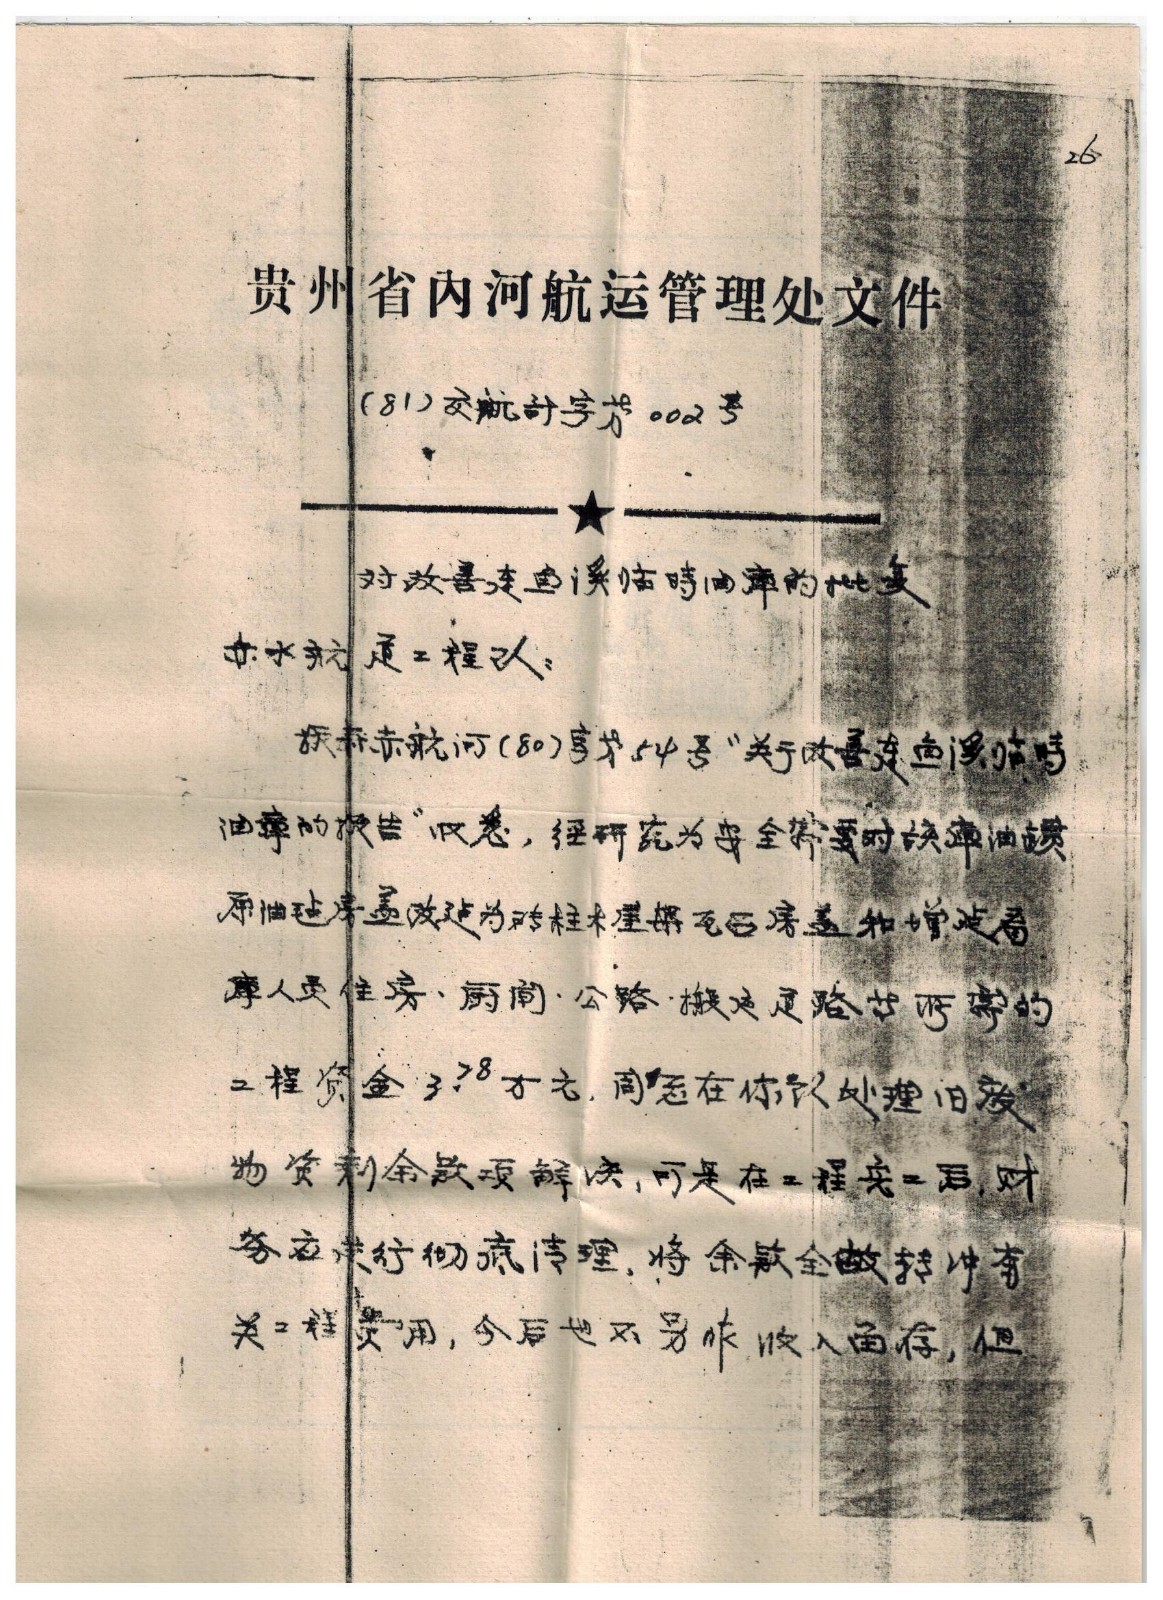 26
贵州省内河航运管理处文件
(81)交航計字第002号
对改善连鱼溪临時油庫的批复
赤水航道工程队:
赤航河(80)字第54号"关于改善连鱼溪临時
油庫的报告"收悉,经研究为安全需要对该庫油
原油毡房盖改建为砖柱木屋架瓦石房盖和增建看
庫人员住房、厨间、公路、搬运道路等所需的
工程资金3.78万元,同意在你队处理旧废
物资剩余款项解决,可是在工程完工后,财
务应进行彻底清理,将余款全部转冲有
关工程费用,今后也不另作收入留存,但